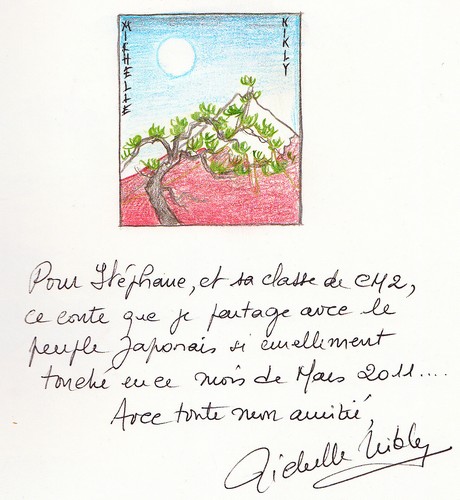 MICHELLE
NIKLY
Pour Stéphane, et sa classe de CM2,
ce conte que je partage avec le
peuple Japonais si cruellement
touché en ce mois de Mars 2011....
Avec toute mon amitié,
Michelle Nikly